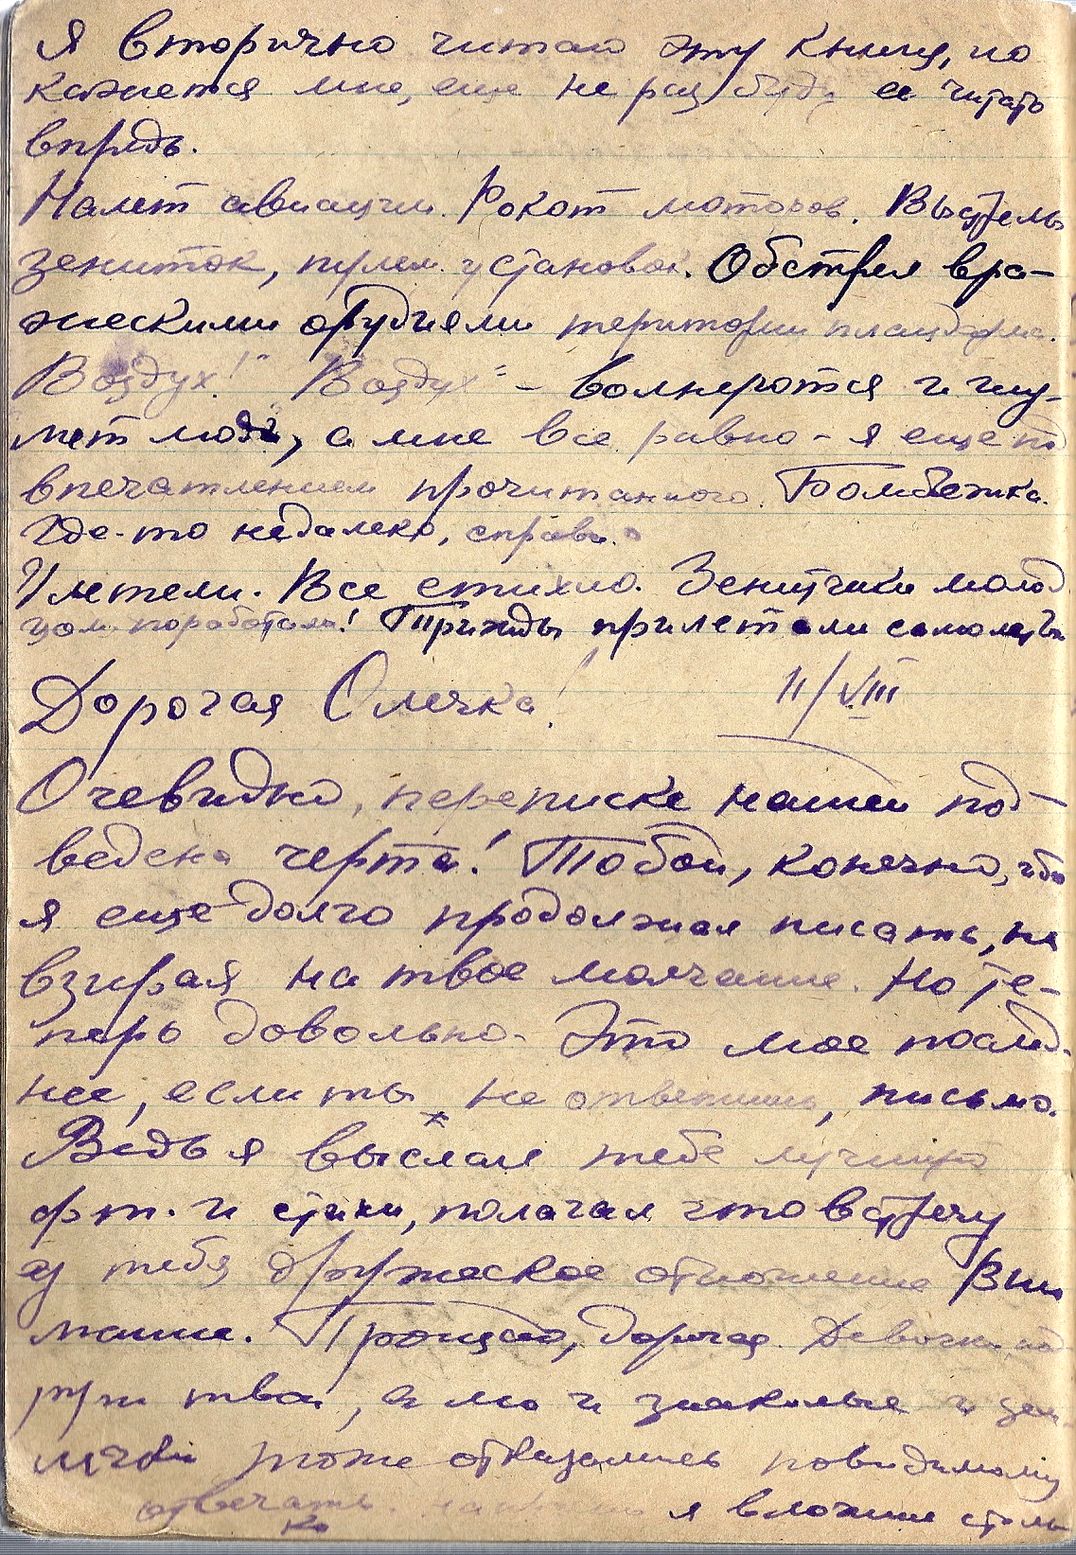 Я вторично читаю эту книгу, но
кажется мне, еще не раз буду ее читать
впредь.
Налет авиации. Рокот моторов. Выстрелы
зениток, пулем. установок. Обстрел вра-
жескими орудиями територии плацдарма.
Воздух!" "Воздух" - волнуются и шу-
мят люди, а мне все равно - я еще под
впечатлением прочитанного. Бомбежка.
Где-то недалеко, справа.
Улетели. Все стихло. Зенитчики молод
цом поработали! Трижды прилетали самолеты
Дорогая Олечка! 11/VIII
Очевидно, переписке нашей под-
ведена черта! Тобой, конечно, ибо
я еще долго продолжал писать, не
взирая на твое молчание. Но те-
перь довольно. Это мое послед-
нее, если ты не ответишь, письмо.
Ведь я выслал тебе лучшую
фот. и стихи, полагая что встречу
у тебя дружеское отношение вни
мание. Прощай, дорогая. Девочки, под
руги твои, а мои знакомые и зем-
лячки тоже отказались повидимому
отвечать. я вложил столь
ко